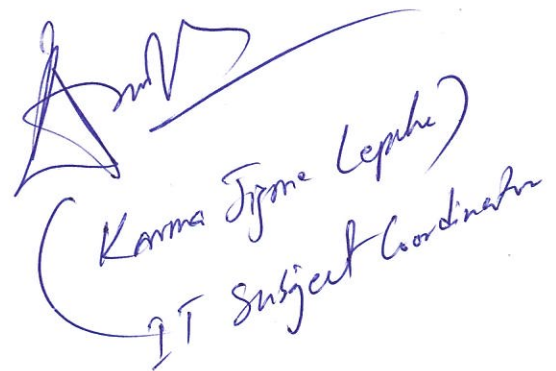 (Karma Jigme Lepcha)
IT Subject Coordinator